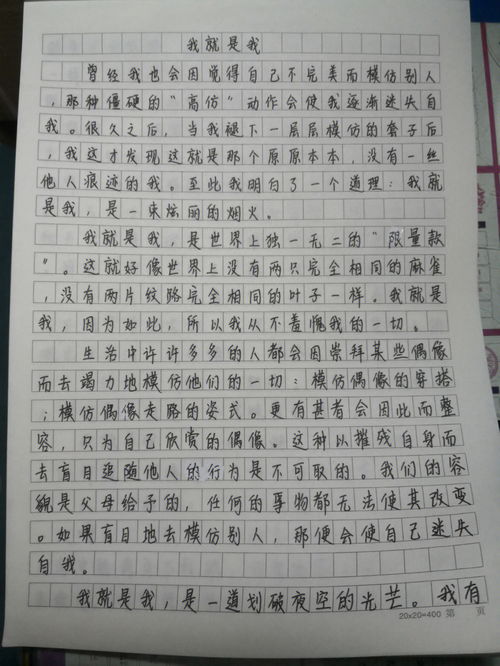 我就是我
曾经我也会因觉得自己不完美而模仿别人
，那种僵硬的“高仿”动作会使我逐渐迷失自
我。很久之后，当我褪下一层层模仿的套子后
，我这才发现这就是那个原原本本，没有一丝
他人痕迹的我。至此我明白了一个道理：我就
是我，是一束炫丽的烟火。
我就是我，是世界上独一无二的“限量款
”。这就好像世界上没有两只完全相同的麻雀
，没有两片纹路完全相同的叶子一样。我就是
我，因为如此，所以我从不羞愧我的一切。
生活中许许多多的人都会因崇拜某些偶像
而去竭力地模仿他们的一切：模仿偶像的穿搭
；模仿偶像走路的姿式。更有甚者会因此而整
容，只为自己欣赏的偶像。这种以摧残自身而
去盲目追随他人的行为是不可取的。我们的容
貌是父母给予的，任何的事物都无法使其改变
。如果盲目地去模仿别人，那便会使自己迷失
自我。
我就是我，是一道划破夜空的光芒。我有
20x20=400 第 页